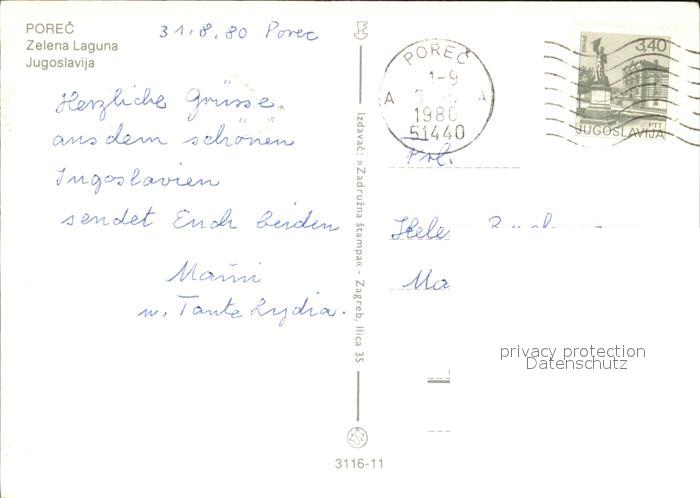 POREČ
Zelena Laguna
Jugoslavija
31.8.80 Porec
Herzliche Grüsse
aus dem schönen
Jugoslavien
sendet Euch beiden
Mami
u. Tante Lydia.
Izdavač: »Zadružna štampa« - Zagreb, Ilica 35
3116-11
POREČ
1-9
A A
1980
51440
3,40
PTT
JUGOSLAVIJA
Frl.
privacy protection
Datenschutz